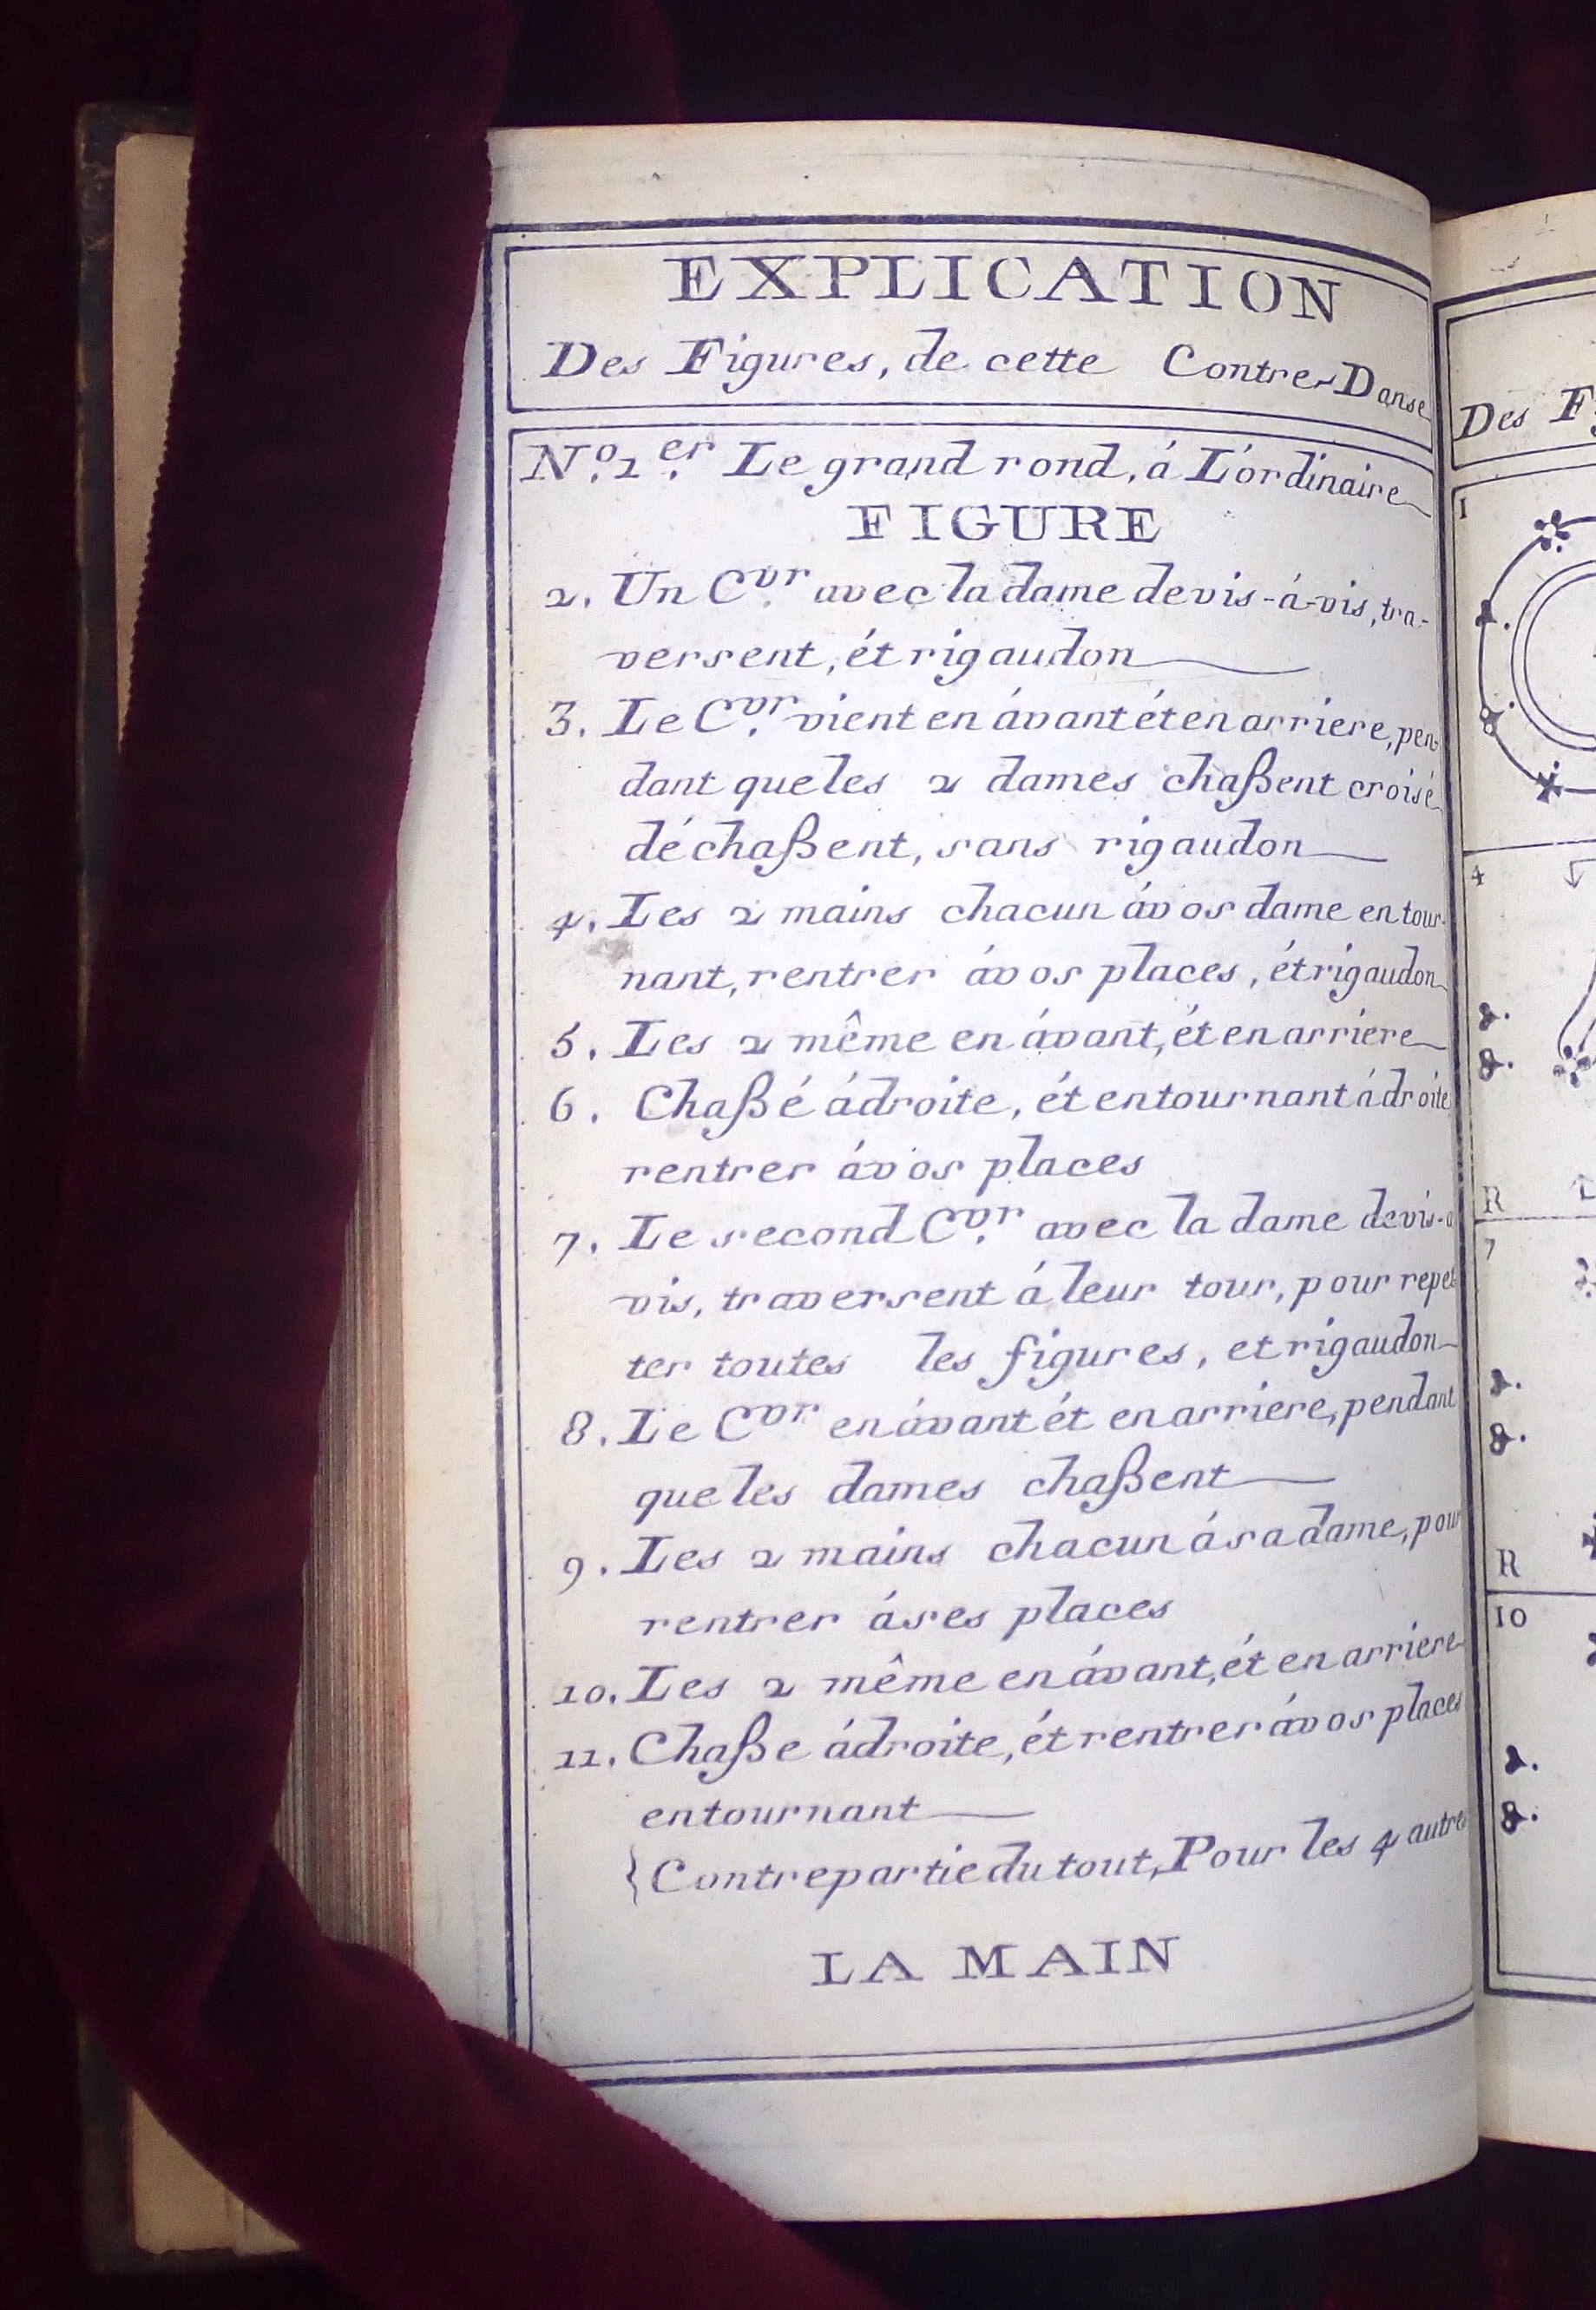 EXPLICATION
Des Figures, de cette Contre-Danse
N.º 1.er Le grand rond, á L'órdinaire
FIGURE
2. Un C.vr avec la dame de vis-á-vis, tra-
versent, ét rigaudon
3. Le C.vr vient en ávant ét en arriere, pen-
dant que les 2 dames chaßent croisé
déchaßent, sans rigaudon
4. Les 2 mains chacun á vos dame en tour-
nant, rentrer á vos places, ét rigaudon
5. Les 2 même en ávant, ét en arriere
6. Chaßé á droite, ét en tournant á droite
rentrer á vos places
7. Le second C.vr avec la dame de vis-a
vis, traversent á leur tour, pour repet
ter toutes les figures, et rigaudon
8. Le C.vr en ávant ét en arriere, pendant
que les dames chaßent
9. Les 2 mains chacun á sa dame, pour
rentrer á ses places
10. Les 2 même en ávant, ét en arriere
11. Chaße á droite, ét rentrer á vos places
en tournant
{Contrepartie du tout, Pour les 4 autres
LA MAIN
Des
1
4
R
7
R
10